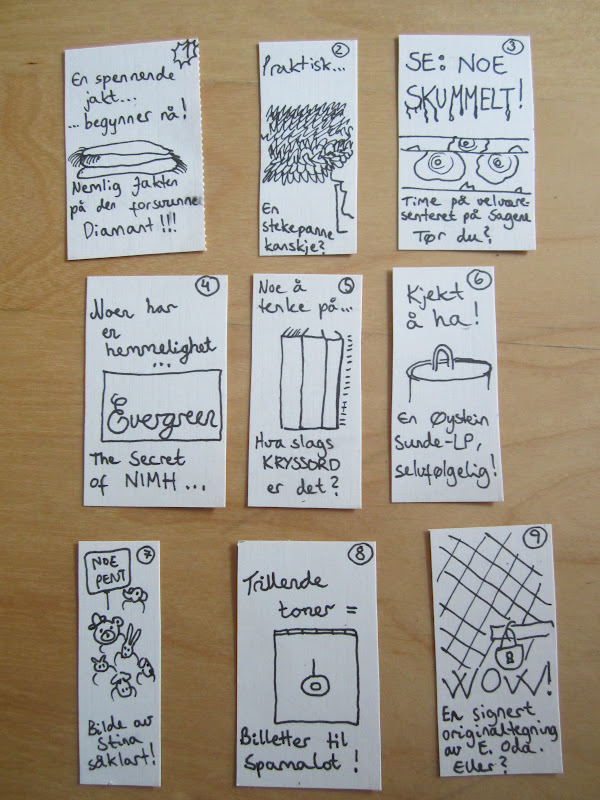 1
En spennende
jakt...
...begynner nå!
Nemlig Jakten
på den forsvunne
Diamant!!!
2
Praktisk...
En
stekepanne
kanskje?
3
SE: NOE
SKUMMELT!
Time på velvære-
senteret på Sagene
Tør du?
4
Noen har
en
hemmelighet
...
Evergreen
The Secret
of NIMH...
5
Noe å
tenke på...
Hva slags
KRYSSORD
er det?
6
Kjekt
å ha!
En Øystein
Sunde-LP,
selvfølgelig!
7
NOE
PENT
Bilde av
Stina
såklart!
8
Trillende
toner =
Billetter til
Spamalot!
9
WOW!
En signert
originaltegning
av E. Oda.
Eller?